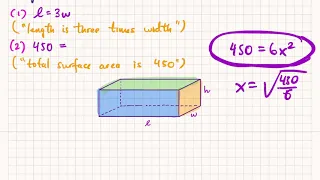 (1) l = 3w
("length is three times width")
(2) 450 =
("total surface area is 450")
450 = 6x²
x = √(450/6)
h
w
l